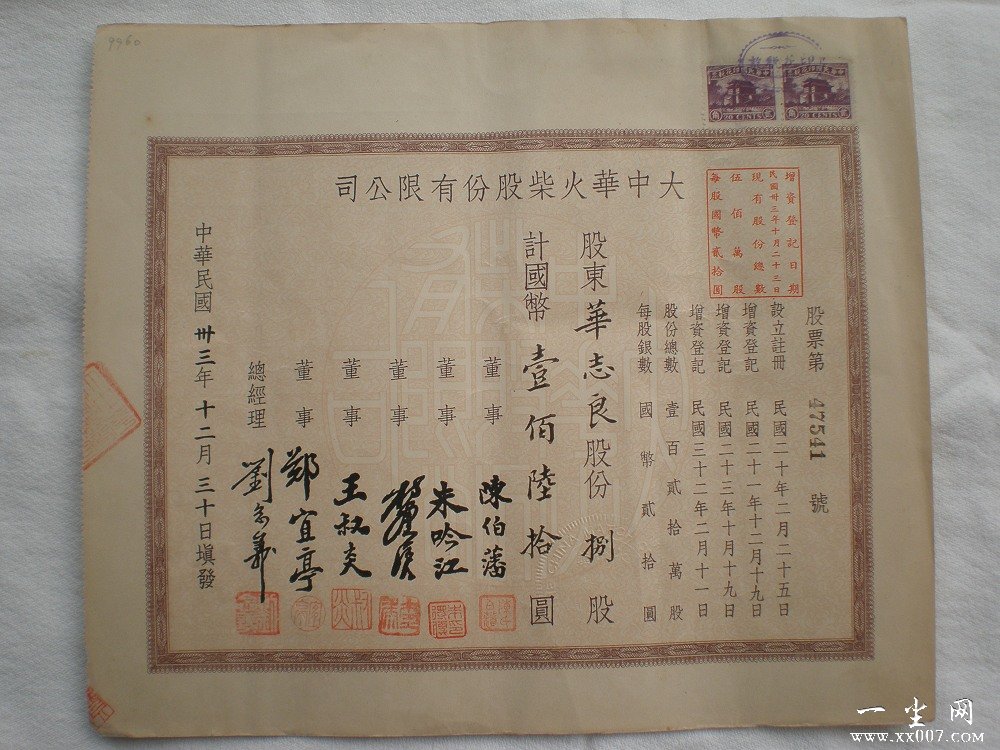 9960
中華民國印花稅票
中華民國印花稅票
貳 20 CENTS 角
貳 20 CENTS 角
大中華火柴股份有限公司
增資登記日期
民國卅三年十月二十三日
現有股份總數
伍佰萬股
每股國幣貳拾圓
股票第 47541 號
設立註冊 民國二十年二月二十五日
增資登記 民國二十一年十二月十九日
增資登記 民國二十三年十月十九日
增資登記 民國三十二年二月十一日
股份總數 壹百貳拾萬股
每股銀數 國幣貳拾圓
股東華志良股份捌股
計國幣壹佰陸拾圓
董事 陳伯藩
董事 朱吟江
董事
董事 王叔炎
董事 鄭宜亭
總經理 劉念義
中華民國卅三年十二月三十日塡發
一尘网
www.xx007.com